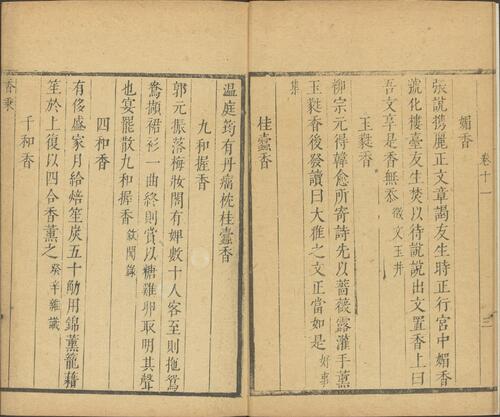 卷十一
三
媚香
張説携麗正文章謁友生時正行宮中媚香
號化樓臺友生焚以待説説出文置香上曰
吾文享是香無忝 徵文玉井
玉蕤香
柳宗元得韓愈所寄詩先以薔薇露灌手薰
玉蕤香後發讀曰大雅之文正當如是 好事
集
桂蠹香
温庭筠有丹瘤枕桂蠹香
九和握香
郭元振落梅妝閣有婢數十人客至則拖鴛
鴦擷裙衫一曲終則賞以糖雞卵取明其聲
也宴罷散九和握香 敘聞錄
四和香
有侈盛家月給焙笙炭五十觔用錦薰籠藉
笙於上復以四合香薰之 癸辛雜識
千和香
香乘